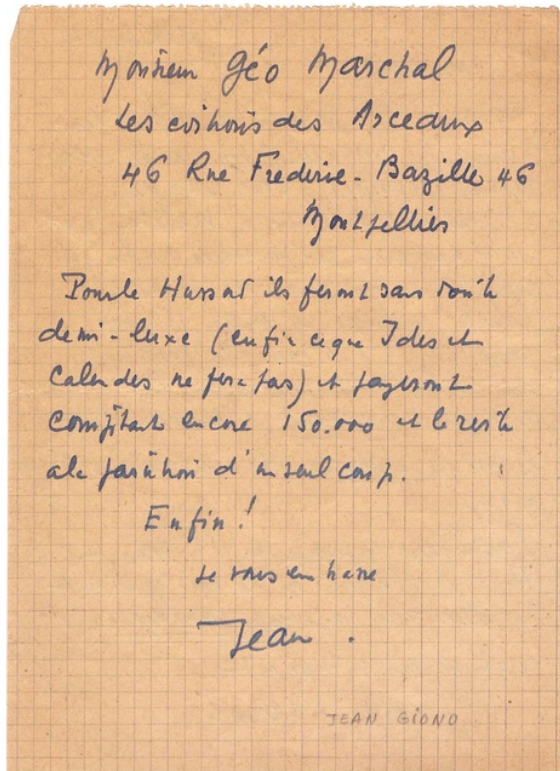 Monsieur Géo Marchal
Les éditions des Arceaux
46 Rue Frederic-Bazille 46
Montpellier
Pour le Hussard ils feront sans doute
demi-luxe (enfin ce que Ides et
Calendes ne fera pas) et payeront
comptant encore 150.000 et le reste
a la parution d'un seul coup.
Enfin!
Je vous embrasse
Jean.
JEAN GIONO